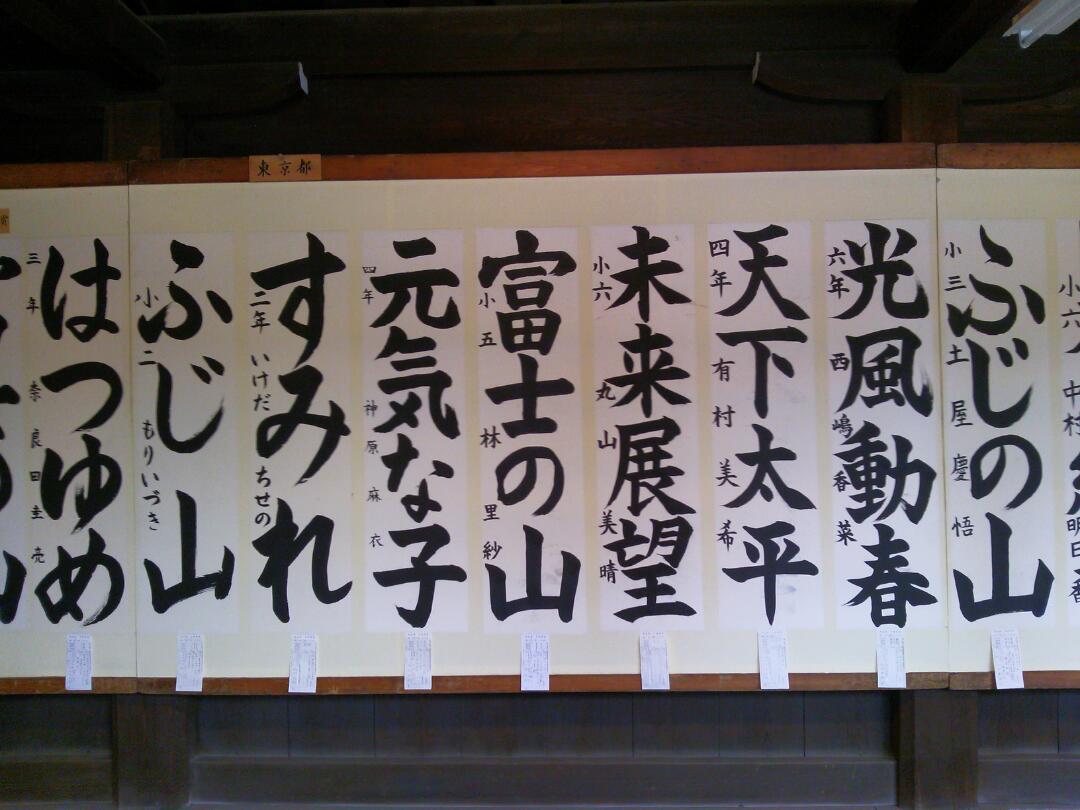 東京都
ふじの山
小三 土屋慶悟
光風動春
六年 西嶋香菜
天下太平
四年 有村美希
未来展望
小六 丸山美晴
富士の山
小五 林里紗
元気な子
四年 神原麻衣
すみれ
二年 いけだちせの
ふじ山
小二 もりいづき
はつゆめ
三年 奈良田圭亮